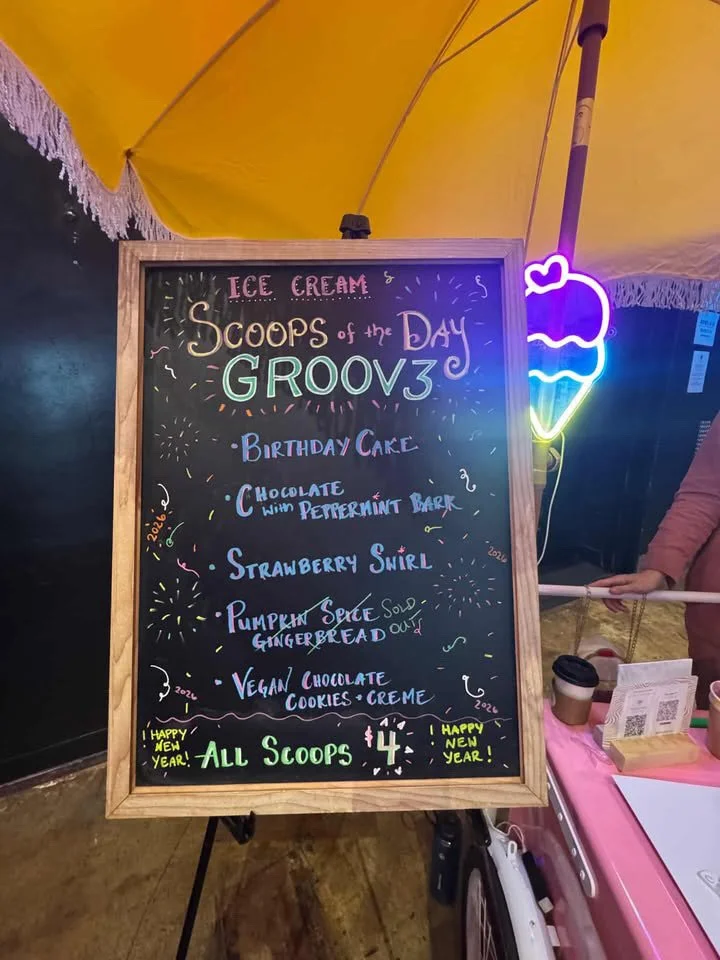 ICE CREAM
SCOOPS of the DAY
GROOV3
• BIRTHDAY CAKE
• CHOCOLATE
with PEPPERMINT BARK
• STRAWBERRY SWIRL
• PUMPKIN SPICE SOLD
GINGERBREAD OUT!
• VEGAN CHOCOLATE
COOKIES + CREME
2026
2026
2026
2026
HAPPY
NEW
YEAR!
ALL SCOOPS $4
! HAPPY
NEW
YEAR!